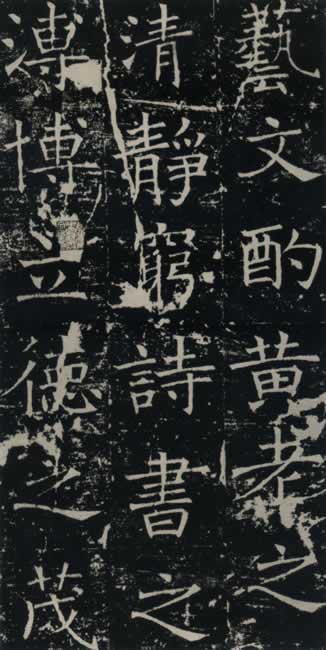 藝文酌黄老之
清靜窮詩書之
溥博立徳之茂